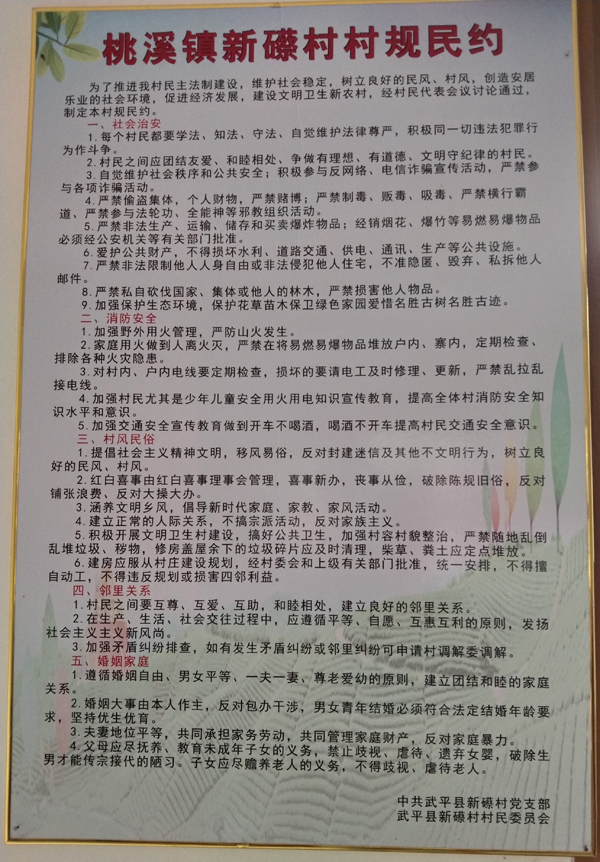 桃溪镇新礤村村规民约
为了推进我村民主法制建设，维护社会稳定，树立良好的民风、村风，创造安居
乐业的社会环境，促进经济发展，建设文明卫生新农村，经村民代表会议讨论通过，
制定本村规民约。
一、社会治安
1.每个村民都要学法、知法、守法、自觉维护法律尊严，积极同一切违法犯罪行
为作斗争。
2.村民之间应团结友爱、和睦相处、争做有理想、有道德、文明守纪律的村民。
3.自觉维护社会秩序和公共安全；积极参与反网络、电信诈骗宣传活动，严禁参
与各项诈骗活动。
4.严禁偷盗集体，个人财物，严禁赌博；严禁制毒、贩毒、吸毒、严禁横行霸
道、严禁参与法轮功、全能神等邪教组织活动。
5.严禁非法生产、运输、储存和买卖爆炸物品；经销烟花、爆竹等易燃易爆物品
必须经公安机关等有关部门批准。
6.爱护公共财产，不得损坏水利、道路交通、供电、通讯、生产等公共设施。
7.严禁非法限制他人人身自由或非法侵犯他人住宅，不准隐匿、毁弃、私拆他人
邮件。
8.严禁私自砍伐国家、集体或他人的林木，严禁损害他人物品。
9.加强保护生态环境，保护花草苗木保卫绿色家园爱惜名胜古树名胜古迹。
二、消防安全
1.加强野外用火管理，严防山火发生。
2.家庭用火做到人离火灭，严禁在将易燃易爆物品堆放户内、寨内，定期检查、
排除各种火灾隐患。
3.对村内、户内电线要定期检查，损坏的要请电工及时修理、更新，严禁乱拉乱
接电线。
4.加强村民尤其是少年儿童安全用火用电知识宣传教育，提高全体村消防安全知
识水平和意识。
5.加强交通安全宣传教育做到开车不喝酒，喝酒不开车提高村民交通安全意识。
三、村风民俗
1.提倡社会主义精神文明，移风易俗，反对封建迷信及其他不文明行为，树立良
好的民风、村风。
2.红白喜事由红白喜事理事会管理，喜事新办，丧事从俭，破除陈规旧俗，反对
铺张浪费、反对大操大办。
3.涵养文明乡风，倡导新时代家庭、家教、家风活动。
4.建立正常的人际关系，不搞宗派活动，反对家族主义。
5.积极开展文明卫生村建设，搞好公共卫生，加强村容村貌整治，严禁随地乱倒
乱堆垃圾、秽物，修房盖屋余下的垃圾碎片应及时清理，柴草、粪土应定点堆放。
6.建房应服从村庄建设规划，经村委会和上级有关部门批准，统一安排，不得擅
自动工，不得违反规划或损害四邻利益。
四、邻里关系
1.村民之间要互尊、互爱、互助，和睦相处，建立良好的邻里关系。
2.在生产、生活、社会交往过程中，应遵循平等、自愿、互惠互利的原则，发扬
社会主义主义新风尚。
3.加强矛盾纠纷排查，如有发生矛盾纠纷或邻里纠纷可申请村调解委调解。
五、婚姻家庭
1.遵循婚姻自由、男女平等、一夫一妻、尊老爱幼的原则，建立团结和睦的家庭
关系。
2.婚姻大事由本人作主，反对包办干涉，男女青年结婚必须符合法定结婚年龄要
求，坚持优生优育。
3.夫妻地位平等，共同承担家务劳动，共同管理家庭财产，反对家庭暴力。
4.父母应尽抚养、教育未成年子女的义务，禁止歧视、虐待、遗弃女婴，破除生
男才能传宗接代的陋习。子女应尽赡养老人的义务，不得歧视、虐待老人。
中共武平县新礤村党支部
武平县新礤村村民委员会